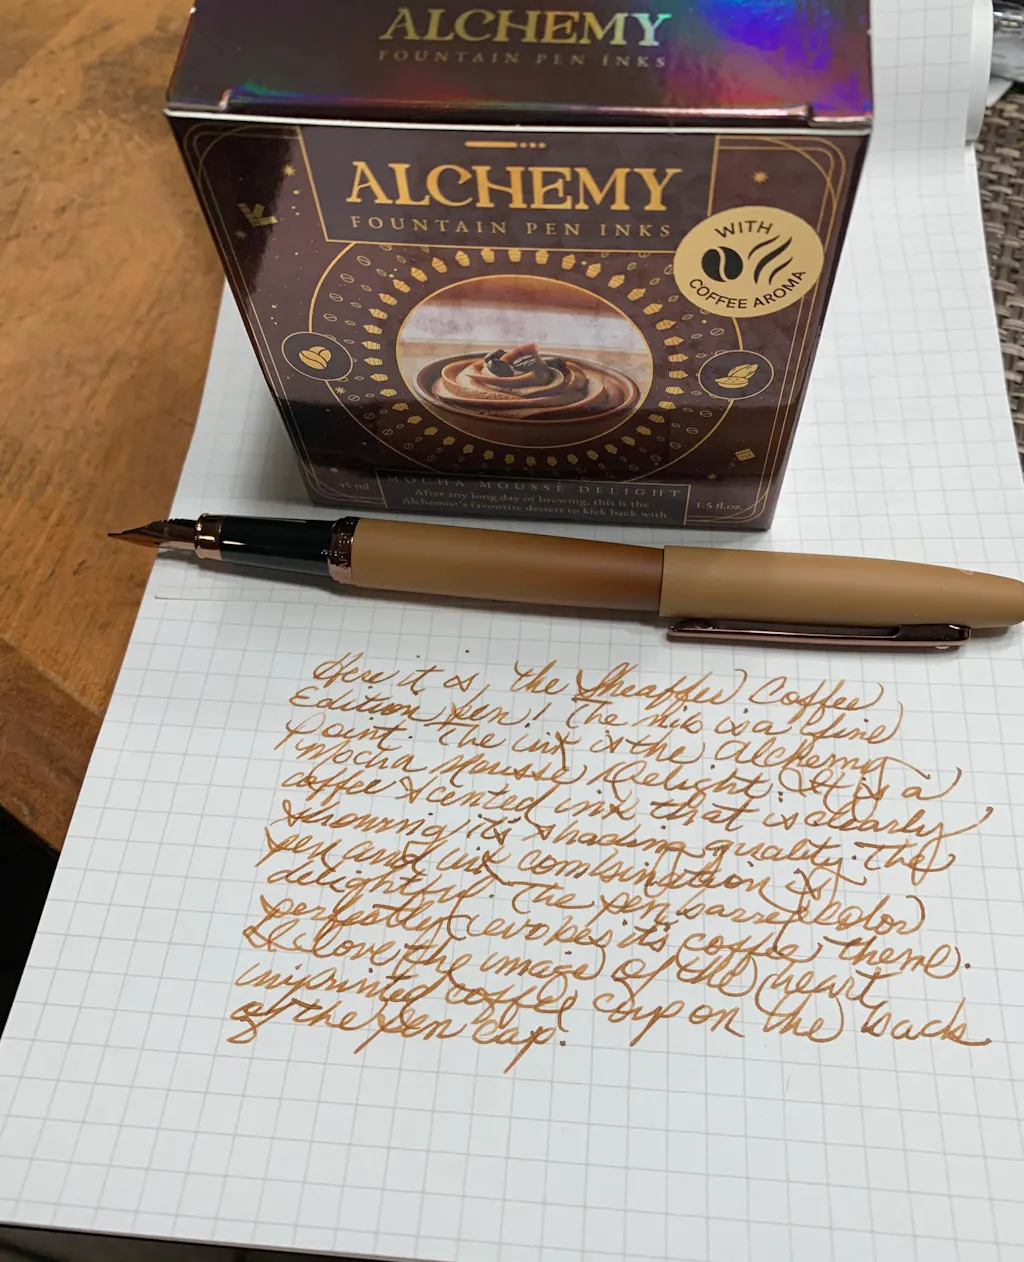 ALCHEMY
FOUNTAIN PEN INKS
ALCHEMY
FOUNTAIN PEN INKS
WITH
COFFEE AROMA
45 ml
MOCHA MOUSSE DELIGHT
After any long day of brewing, this is the
Alchemist's favourite dessert to kick back with
1.5 fl.oz.
Here it is, the Sheaffer Coffee
Edition pen! The nib is a fine
point. The ink is the Alchemy
Mocha Mousse Delight. It is a
coffee scented ink that is clearly
showing its shading quality. The
pen and ink combination is
delightful. The pen barrel color
perfectly evokes its coffee theme.
I love the image of the heart
imprinted coffee cup on the back
of the pen cap.